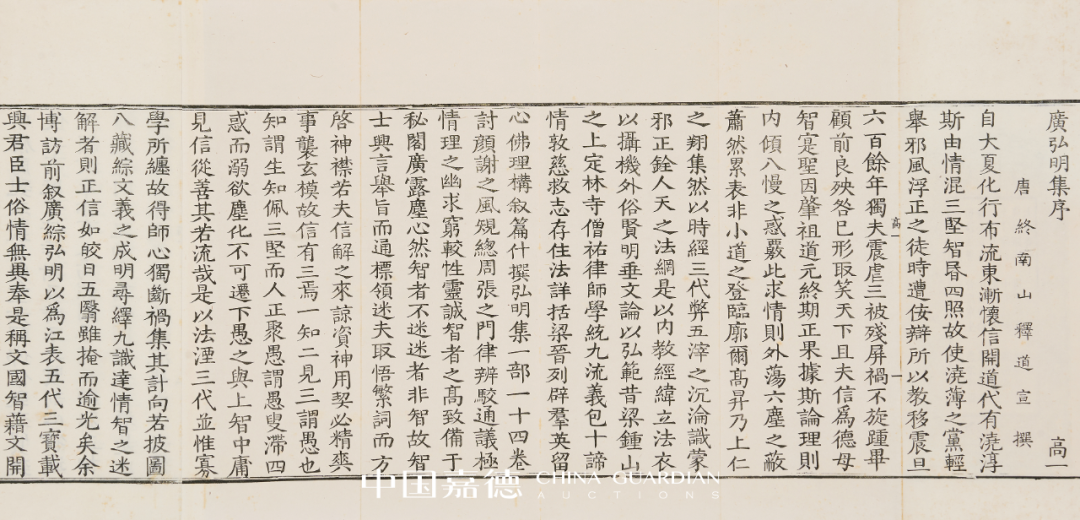 廣弘明集序
高一
唐終南山釋道宣撰
自大夏化行布流東漸懷信開道代有澆淳
斯由情混三堅智昏四照故使澆薄之黨輕
舉邪風浮正之徒時遭佞辯所以教移震旦
高一
六百餘年獨夫震虐三被殘屏禍不旋踵畢
顧前良殃咎已形取笑天下且夫信為德母
智寔聖因肇祖道元終期正果據斯論理則
內傾八慢之惑覈此求情則外蕩六塵之蔽
蕭然累表非小道之登臨廓爾高昇乃上仁
之翔集然以時經三代弊五滓之沉淪識蒙
邪正銓人天之法網是以內教經緯立法衣
以攝機外俗賢明垂文論以弘範昔梁鍾山
之上定林寺僧祐律師學統九流義包十諦
情敦慈救志存住法詳括梁晉列辟羣英留
心佛理構叙篇什撰弘明集一部一十四卷
討顏謝之風規總周張之門律辨駮通議極
情理之幽求窮較性靈誠智者之高致備于
秘閣廣露塵心然智者不迷迷者非智故智
士興言舉旨而通標領迷夫取悟繁詞而方
啓神襟若夫信解之來諒資神用契必精爽
事襲玄模故信有三焉一知二見三謂愚也
知謂生知佩三堅而人正聚愚謂愚叟滯四
惑而溺欲塵化不可遷下愚之與上智中庸
見信從善其若流哉是以法湮三代並惟寡
學所纏故得師心獨斷禍集其計向若披圖
八藏綜文義之成明尋繹九識達情智之迷
解者則正信如皎日五翳雖掩而逾光矣余
博訪前叙廣綜弘明以為江表五代三寶載
興君臣士俗情無異奉是稱文國智藉文開
中国嘉德 CHINA GUARDIAN
AUCTIONS